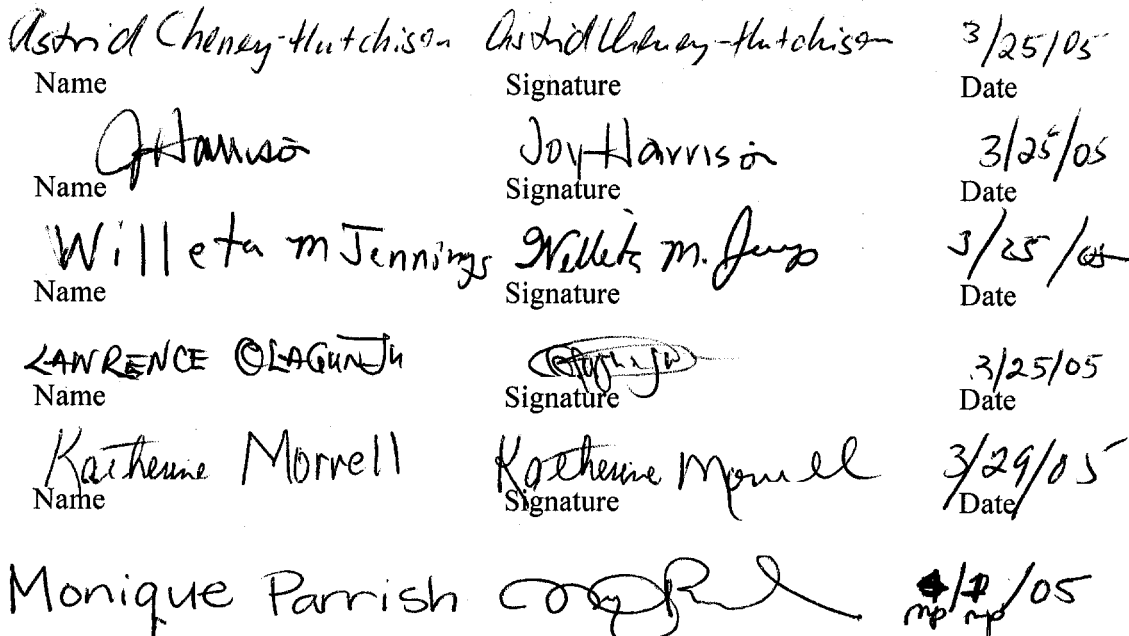 Astrid Cheney-Hutchison Astrid Cheney-Hutchison 3/25/05
Name Signature Date
JHarrison Joy Harrison 3/25/05
Name Signature Date
Willeta m Jennings Willeta M. 3/25/05
Name Signature Date
LAWRENCE OLAGUNJU Olagunju 3/25/05
Name Signature Date
Katherine Morrell Katherine Morrell 3/29/05
Name Signature Date
Monique Parrish 4/1/05
mp mp